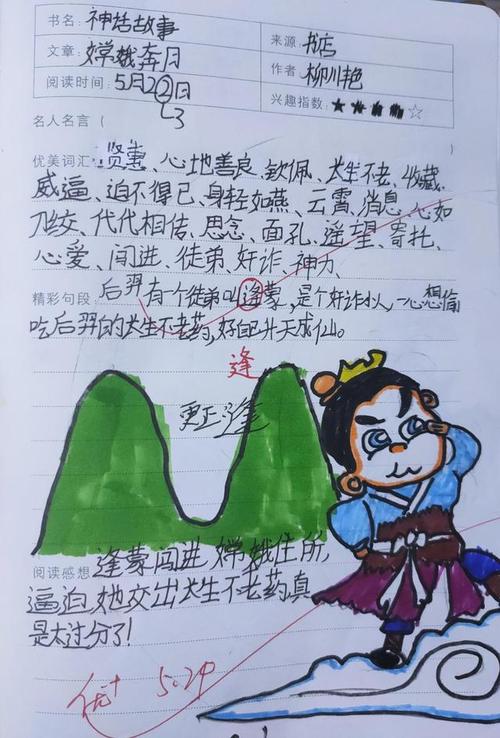 书名： 神话故事
来源： 书店
文章： 嫦娥奔月
作者： 柳川艳
阅读时间： 5月22日
23
兴趣指数： ★★★★☆
名人名言（
优美词汇 贤惠、心地善良、钦佩、长生不老、收藏、
威逼、迫不得已、身轻如燕、云霄、消息、心如
刀绞、代代相传、思念、面孔、遥望、寄托、
心爱、闯进、徒弟、奸诈、神力、
精彩句段、后羿有个徒弟叫逢蒙，是个奸诈小人，一心想偷
吃后羿的长生不老药，好自己升天成仙。
逢
更正：逢
阅读感想 逢蒙闯进嫦娥住所，
逼迫她交出长生不老药真
是太过分了！
优+ 5.24